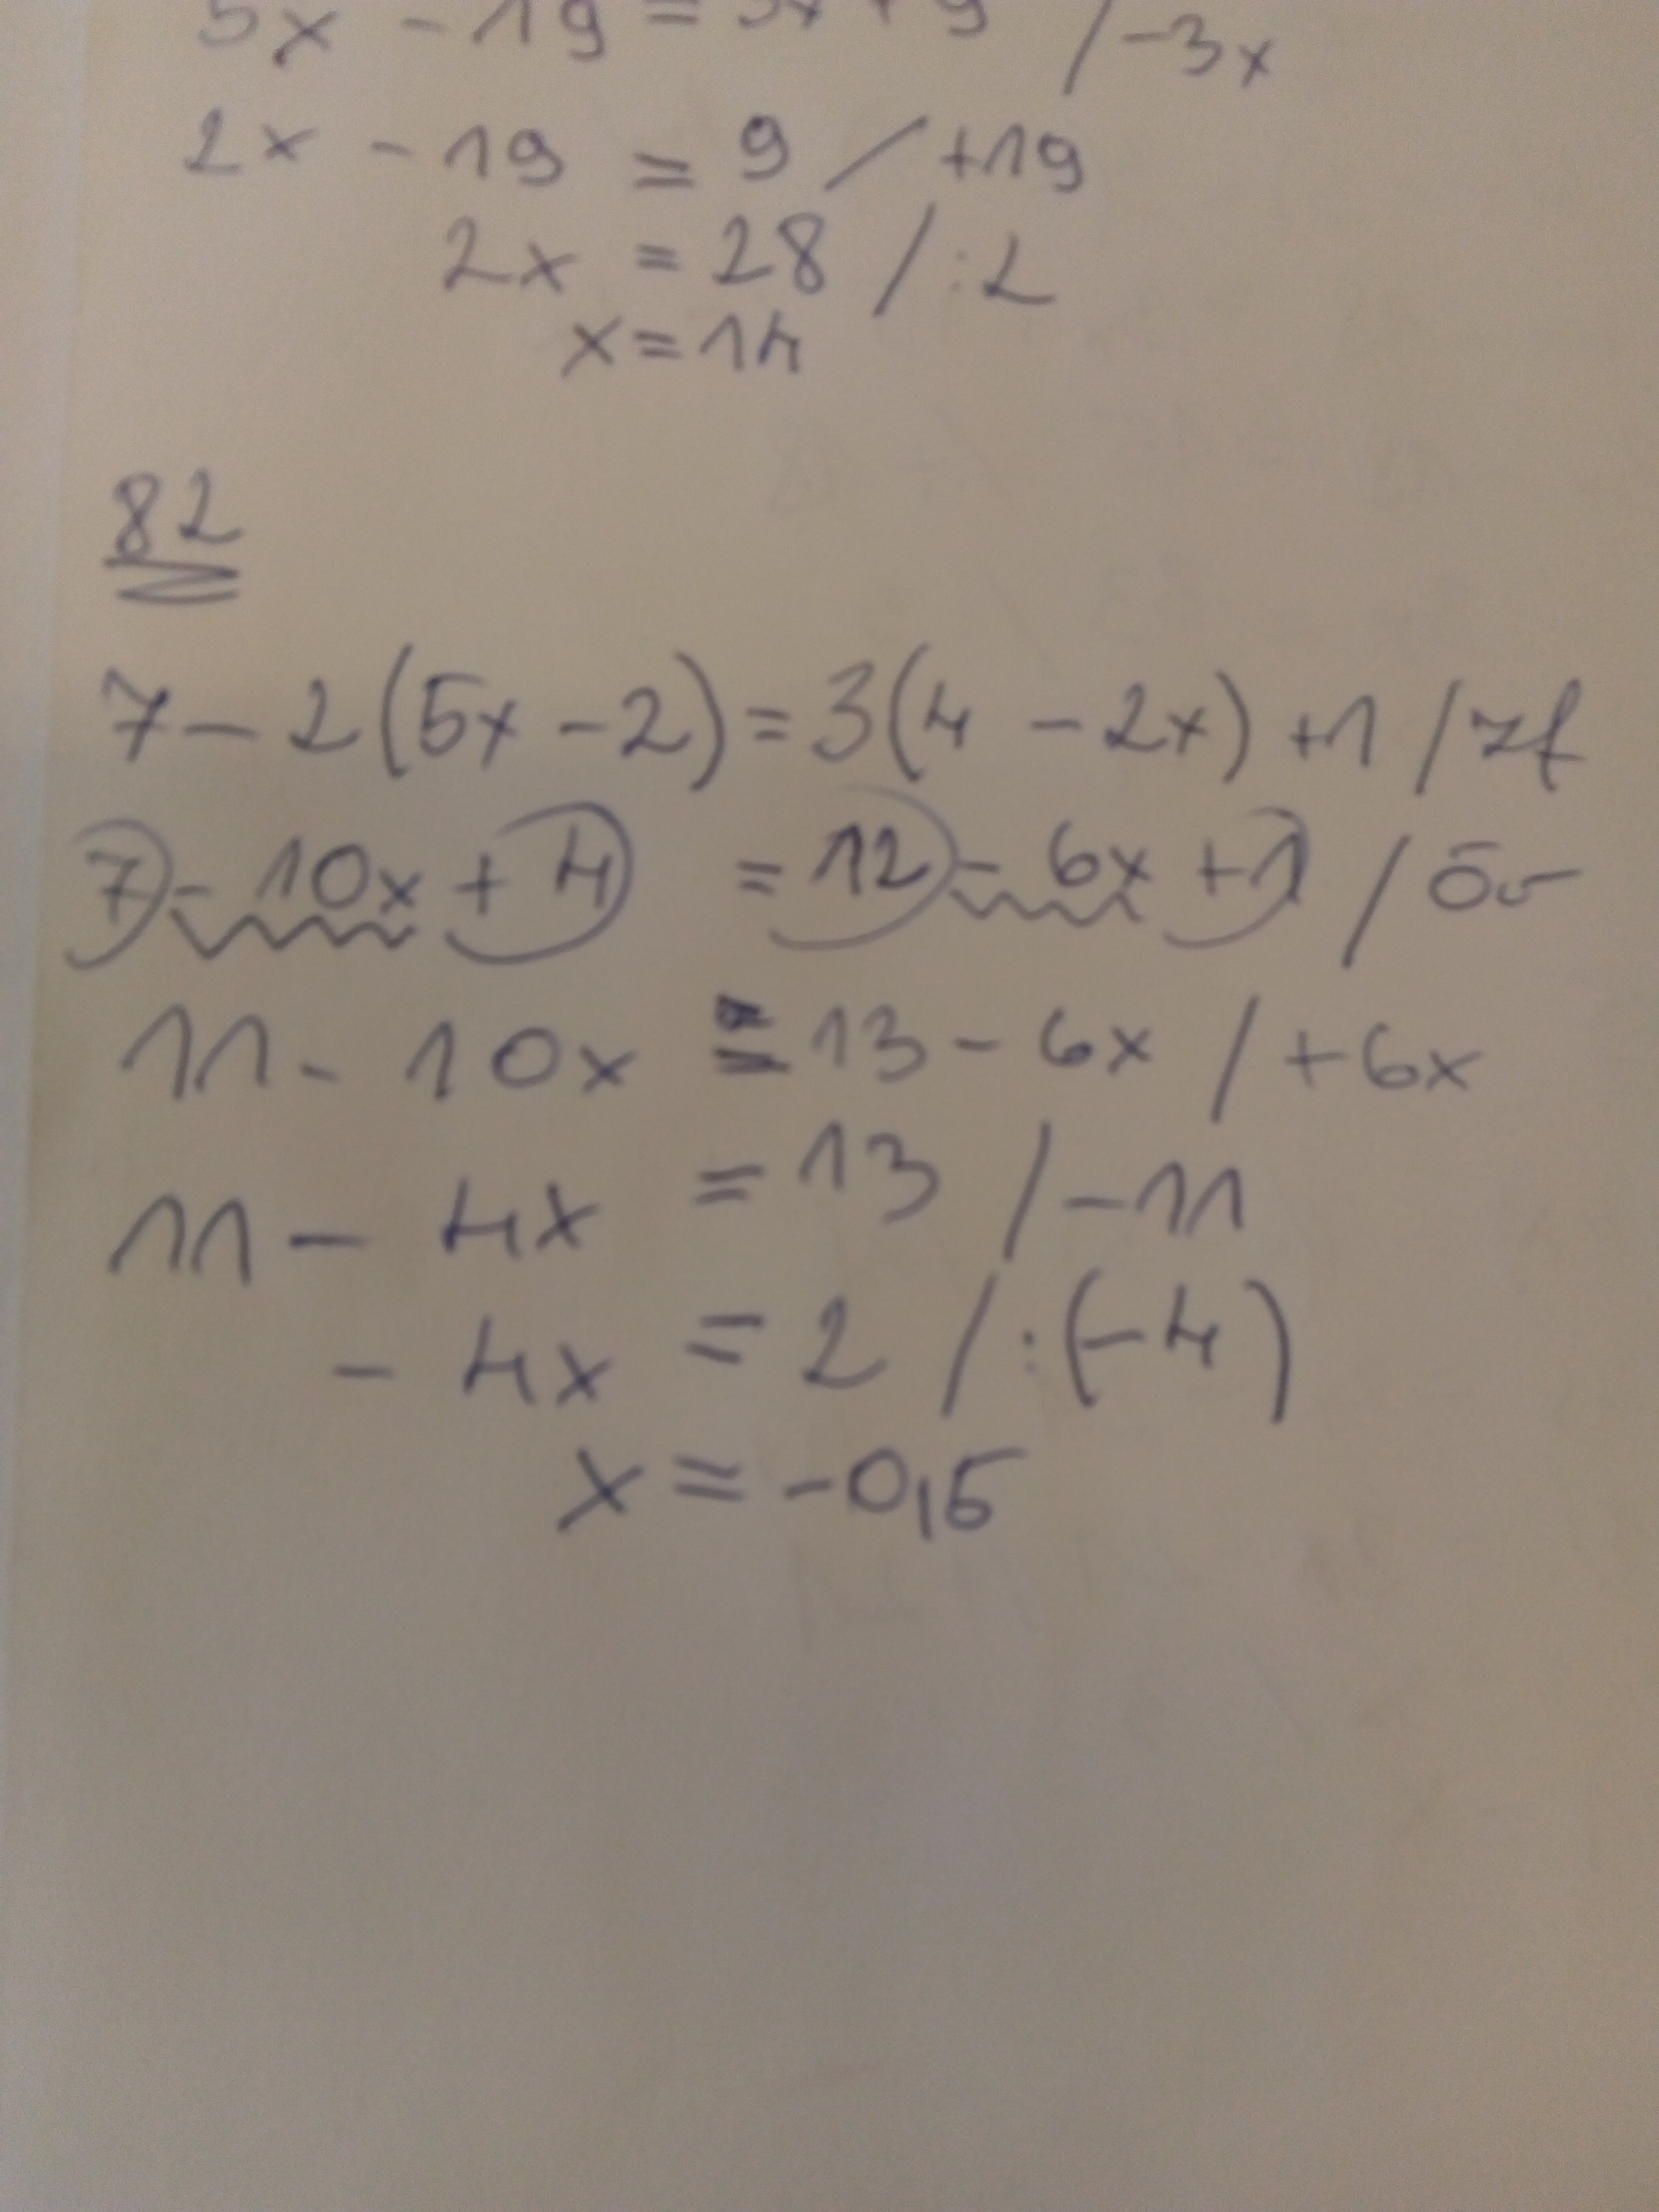 5x - 19 = 3x + 9 / -3x
2x - 19 = 9 / +19
2x = 28 / :2
x = 14
82
7 - 2(5x - 2) = 3(4 - 2x) + 1 / zf
7 - 10x + 4 = 12 - 6x + 1 / öv
11 - 10x = 13 - 6x / +6x
11 - 4x = 13 / -11
- 4x = 2 / :(-4)
x = -0,5